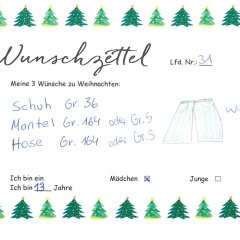 Wunschzettel
Lfd. Nr.: 31
Meine 3 Wünsche zu Weihnachten:
Schuh Gr. 36
Mantel Gr. 164 oder Gr. S
Hose Gr. 164 oder Gr. S
Ich bin ein Mädchen ☒ Junge ☐
Ich bin 13 Jahre